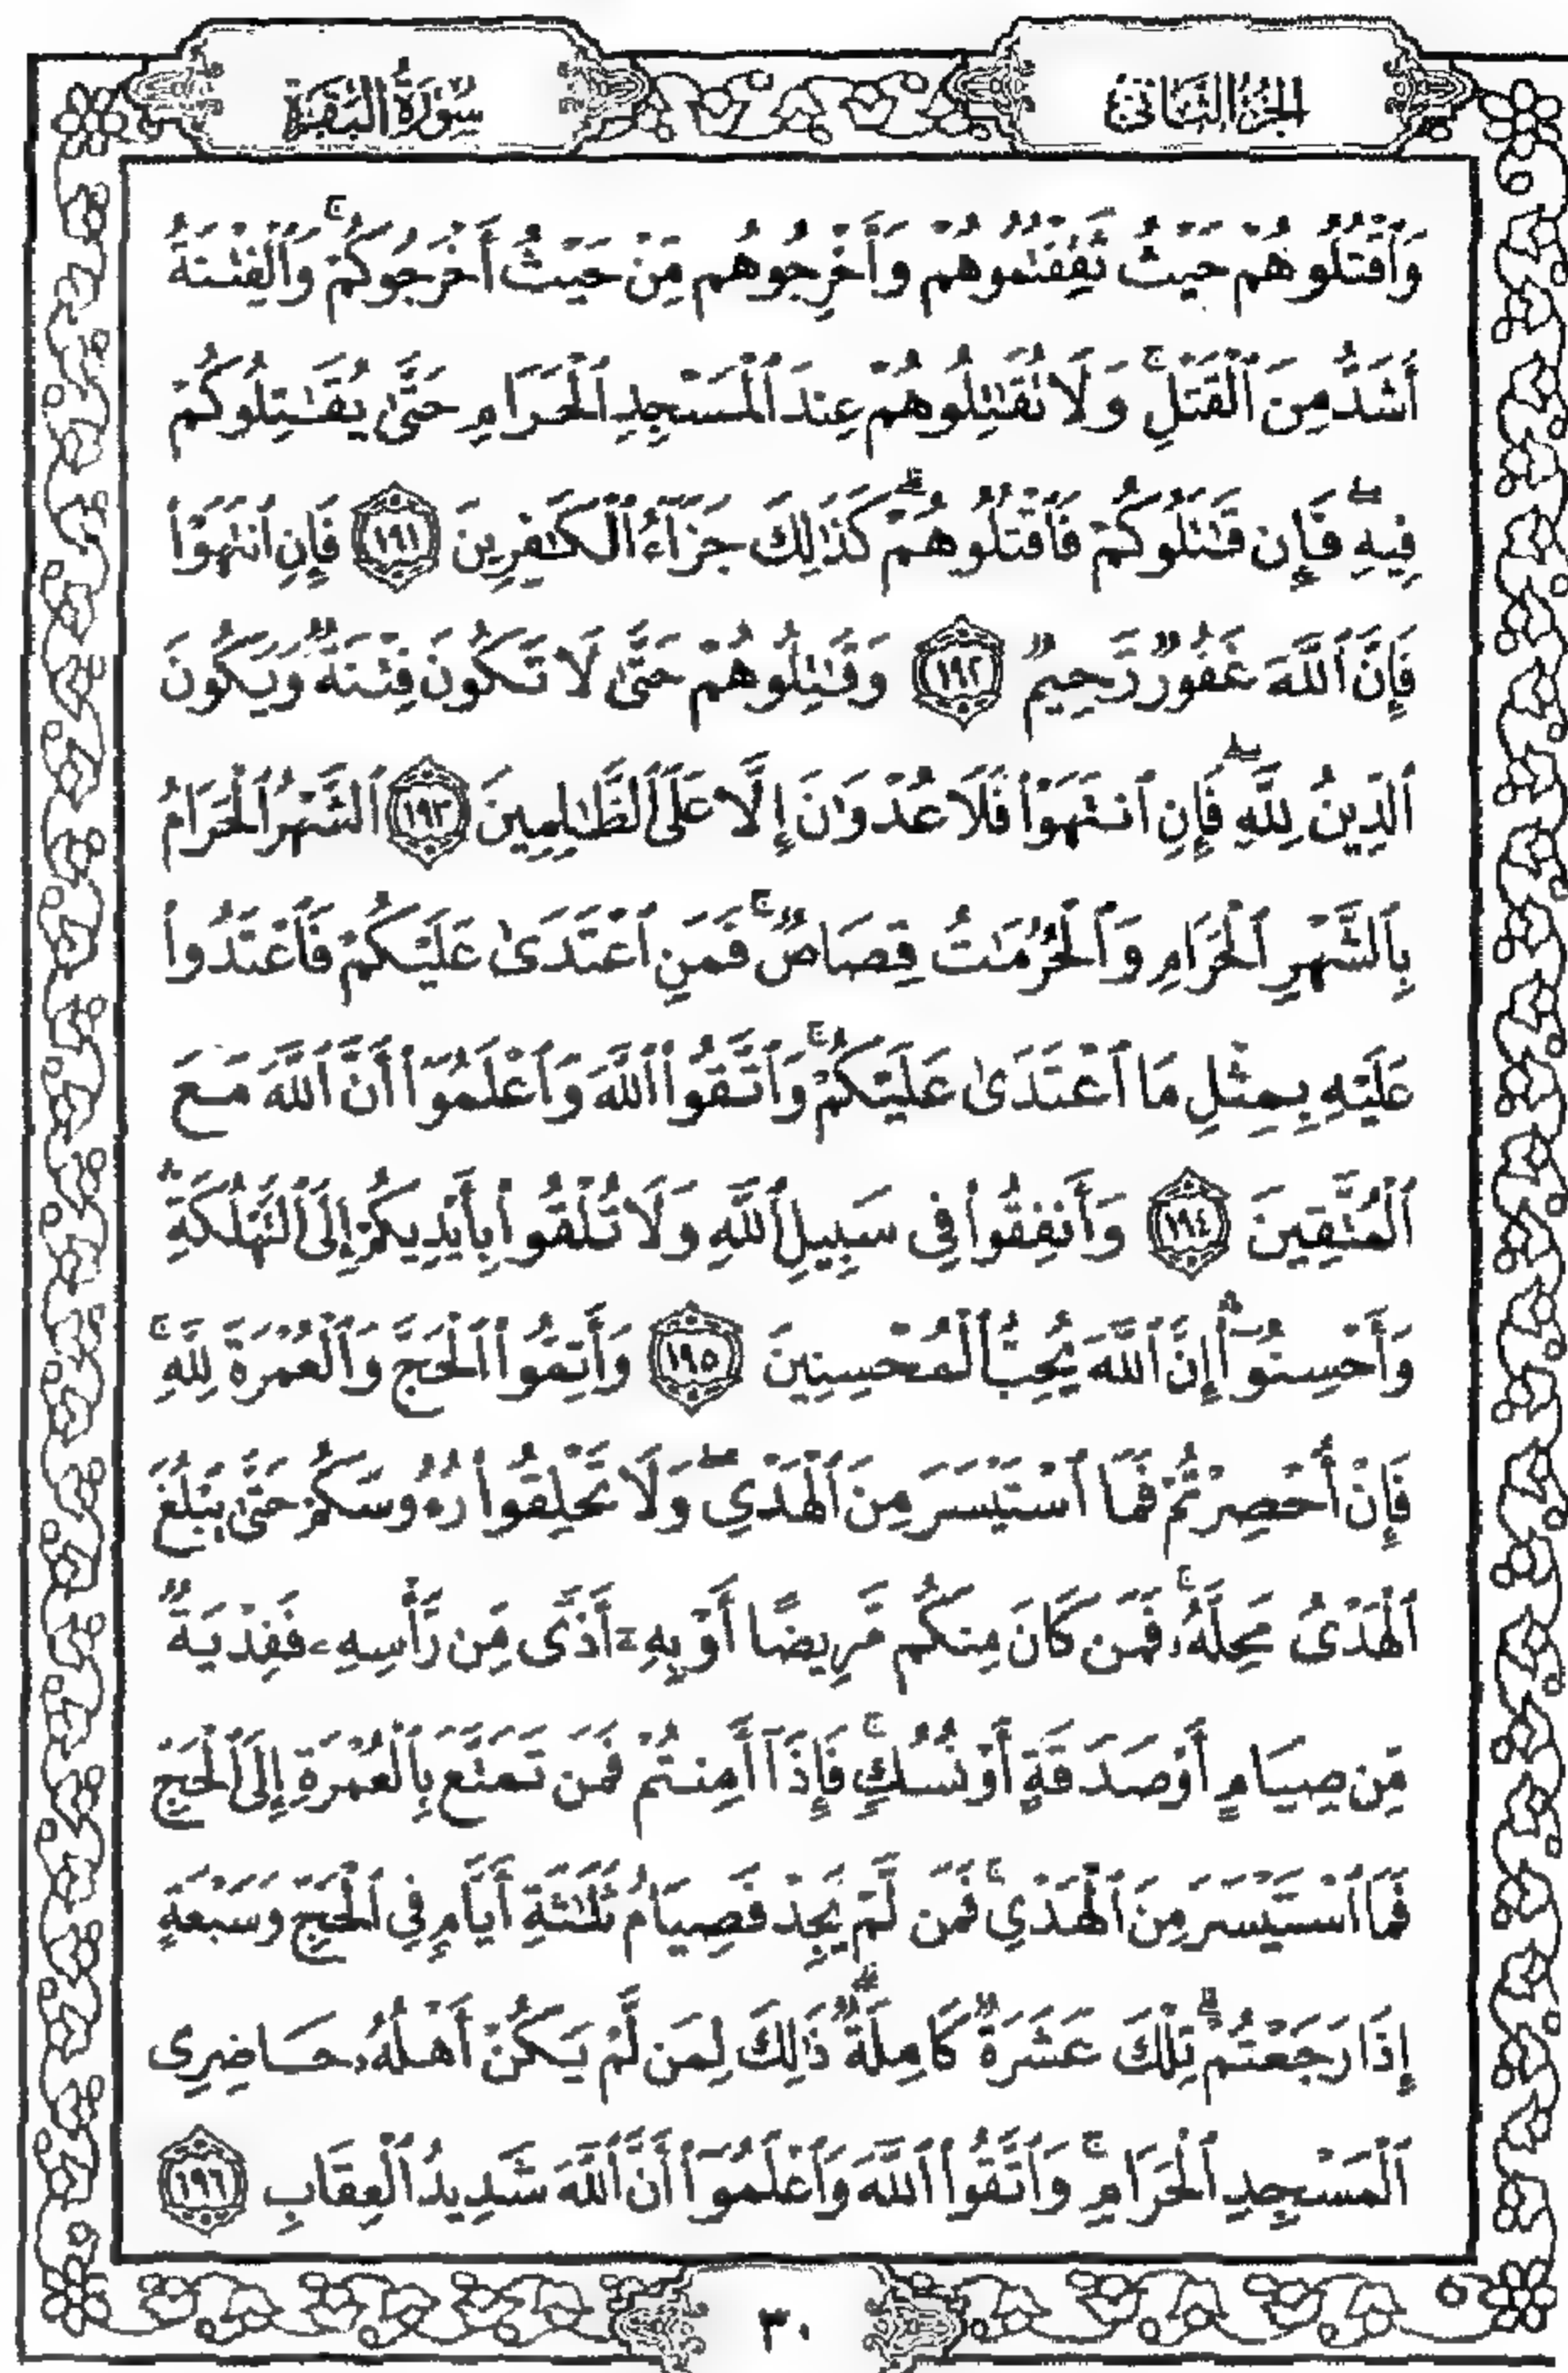 الجزء الثاني
سورة البقرة
وَٱقْتُلُوهُمْ حَيْثُ ثَقِفْتُمُوهُمْ وَأَخْرِجُوهُم مِّنْ حَيْثُ أَخْرَجُوكُمْ ۚ وَٱلْفِتْنَةُ
أَشَدُّ مِنَ ٱلْقَتْلِ ۚ وَلَا تُقَـٰتِلُوهُمْ عِندَ ٱلْمَسْجِدِ ٱلْحَرَامِ حَتَّىٰ يُقَـٰتِلُوكُمْ
فِيهِ ۖ فَإِن قَـٰتَلُوكُمْ فَٱقْتُلُوهُمْ ۗ كَذَٰلِكَ جَزَآءُ ٱلْكَـٰفِرِينَ ١٩١ فَإِنِ ٱنتَهَوْا۟
فَإِنَّ ٱللَّهَ غَفُورٌ رَّحِيمٌ ١٩٢ وَقَـٰتِلُوهُمْ حَتَّىٰ لَا تَكُونَ فِتْنَةٌ وَيَكُونَ
ٱلدِّينُ لِلَّهِ ۖ فَإِنِ ٱنتَهَوْا۟ فَلَا عُدْوَٰنَ إِلَّا عَلَى ٱلظَّـٰلِمِينَ ١٩٣ ٱلشَّهْرُ ٱلْحَرَامُ
بِٱلشَّهْرِ ٱلْحَرَامِ وَٱلْحُرُمَـٰتُ قِصَاصٌ ۚ فَمَنِ ٱعْتَدَىٰ عَلَيْكُمْ فَٱعْتَدُوا۟
عَلَيْهِ بِمِثْلِ مَا ٱعْتَدَىٰ عَلَيْكُمْ ۚ وَٱتَّقُوا۟ ٱللَّهَ وَٱعْلَمُوٓا۟ أَنَّ ٱللَّهَ مَعَ
ٱلْمُتَّقِينَ ١٩٤ وَأَنفِقُوا۟ فِى سَبِيلِ ٱللَّهِ وَلَا تُلْقُوا۟ بِأَيْدِيكُمْ إِلَى ٱلتَّهْلُكَةِ ۛ
وَأَحْسِنُوٓا۟ ۛ إِنَّ ٱللَّهَ يُحِبُّ ٱلْمُحْسِنِينَ ١٩٥ وَأَتِمُّوا۟ ٱلْحَجَّ وَٱلْعُمْرَةَ لِلَّهِ ۚ
فَإِنْ أُحْصِرْتُمْ فَمَا ٱسْتَيْسَرَ مِنَ ٱلْهَدْىِ ۖ وَلَا تَحْلِقُوا۟ رُءُوسَكُمْ حَتَّىٰ يَبْلُغَ
ٱلْهَدْىُ مَحِلَّهُۥ ۚ فَمَن كَانَ مِنكُم مَّرِيضًا أَوْ بِهِۦٓ أَذًى مِّن رَّأْسِهِۦ فَفِدْيَةٌ
مِّن صِيَامٍ أَوْ صَدَقَةٍ أَوْ نُسُكٍ ۚ فَإِذَآ أَمِنتُمْ فَمَن تَمَتَّعَ بِٱلْعُمْرَةِ إِلَى ٱلْحَجِّ
فَمَا ٱسْتَيْسَرَ مِنَ ٱلْهَدْىِ ۚ فَمَن لَّمْ يَجِدْ فَصِيَامُ ثَلَـٰثَةِ أَيَّامٍ فِى ٱلْحَجِّ وَسَبْعَةٍ
إِذَا رَجَعْتُمْ ۗ تِلْكَ عَشَرَةٌ كَامِلَةٌ ۗ ذَٰلِكَ لِمَن لَّمْ يَكُنْ أَهْلُهُۥ حَاضِرِى
ٱلْمَسْجِدِ ٱلْحَرَامِ ۚ وَٱتَّقُوا۟ ٱللَّهَ وَٱعْلَمُوٓا۟ أَنَّ ٱللَّهَ شَدِيدُ ٱلْعِقَابِ ١٩٦
٣٠